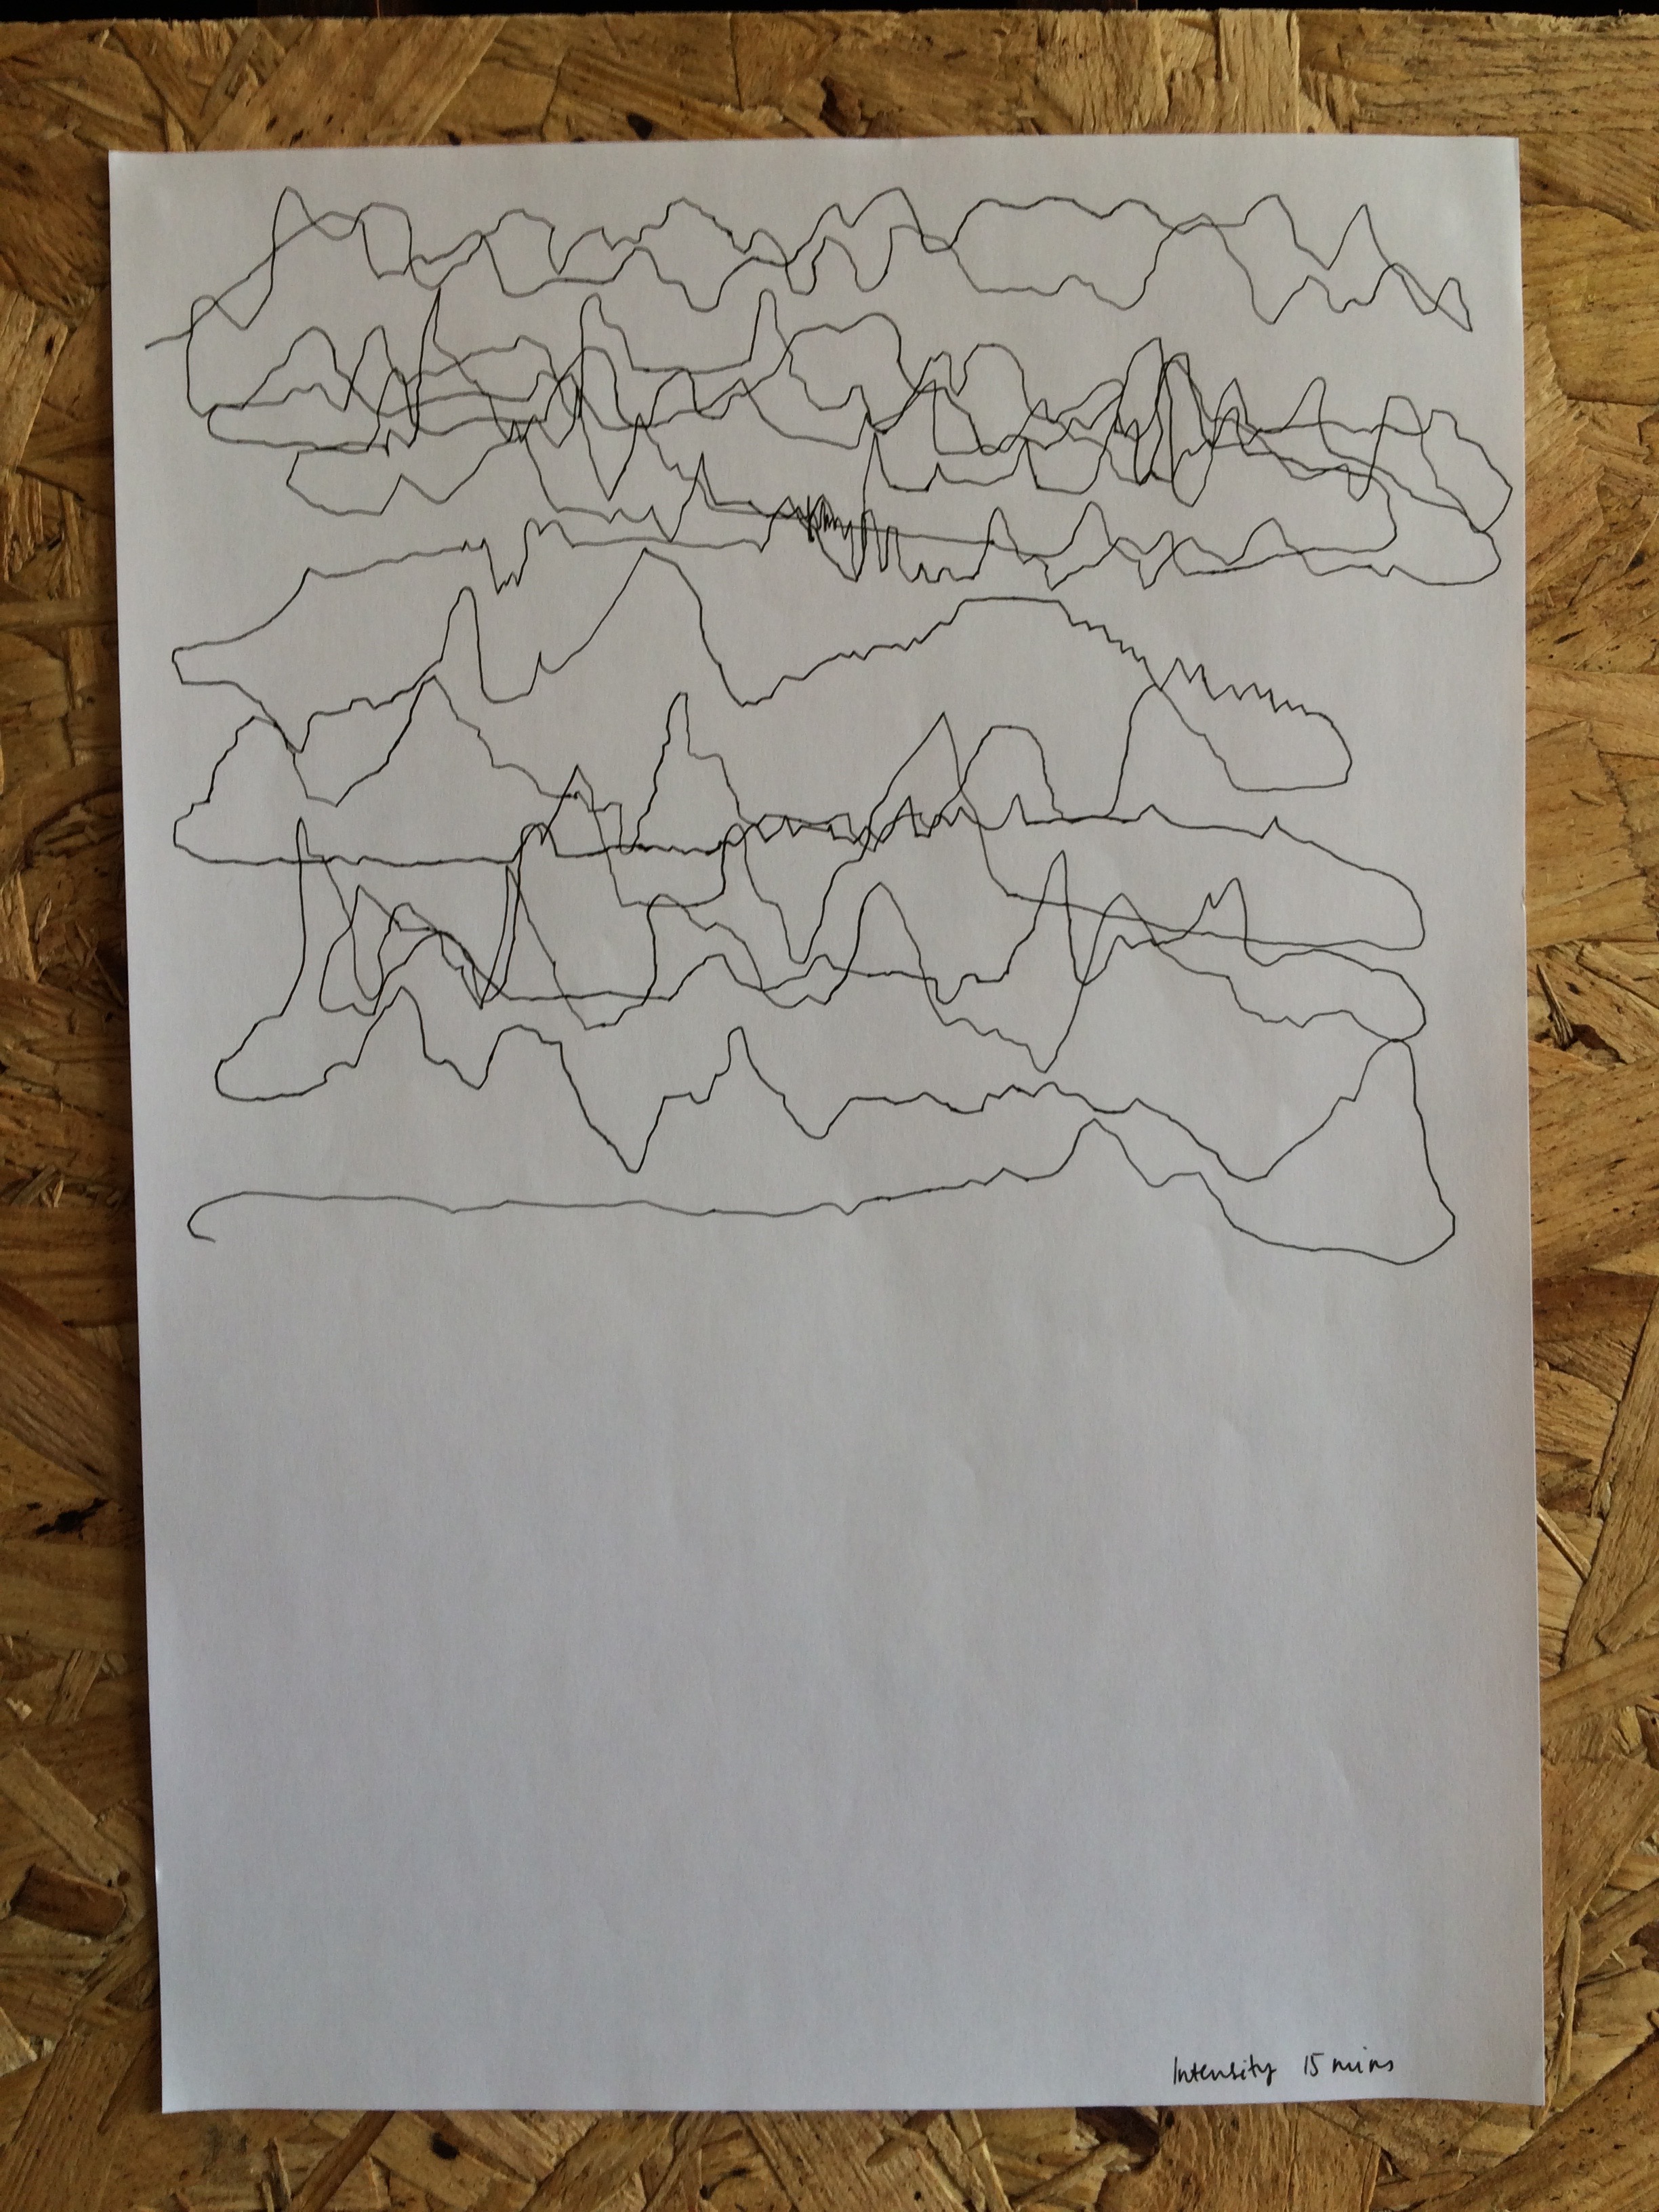 Intensity 15 mins